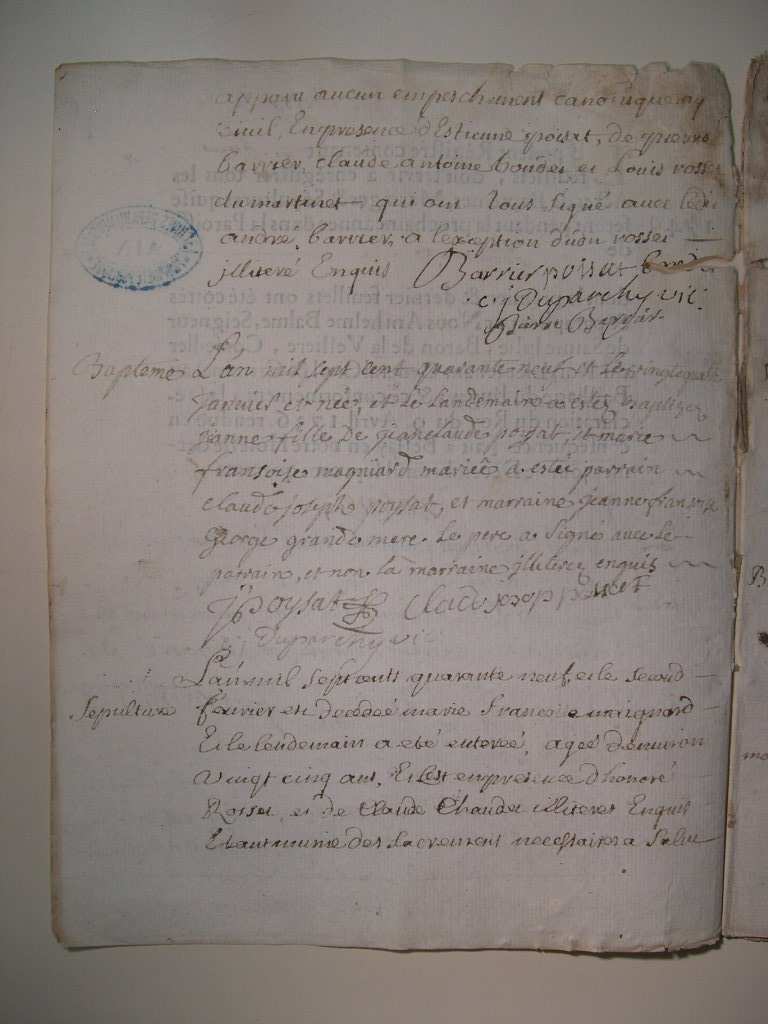 aucun empeschement canonique ny
Civil, En presence d'Estienne poisat, de pierre
barrier, claude antoine et Louis rosset
dumartinet qui ont tous Signé avec ledit
andré barrier, a l'exception dudit rosset
illiteré Enquis Barrier poissat
c j Duparchy vic:
Pierre
Bapteme L'an mil sept cent quarante neuf et le vingtequatre
Janvier et née, et le landemain a estez Baptizez
jeanne fille de jeanclaude poysat, et marie
fransoise magniard mariéé a estéé parrain
claude joseph poysat, et marraine jeanne fransoise
George grande mere. le pere a Signé avec le
parrain, et non la marraine illiteree enquis
j Poysat Clado josep
c j Duparchy vic:
L'an mil sept cents quarante neuf, et le second
Sepulture fevrier est decedeé marie Francoise maignard
Et le lendemain a eté enterreé, ageé d'environ
vingt cinq ans. Et c'est en presence d'honoré
Rosset, et de Claude Chaudet illiteres Enquis
Etant munie des Sacrements necessaires a Salut